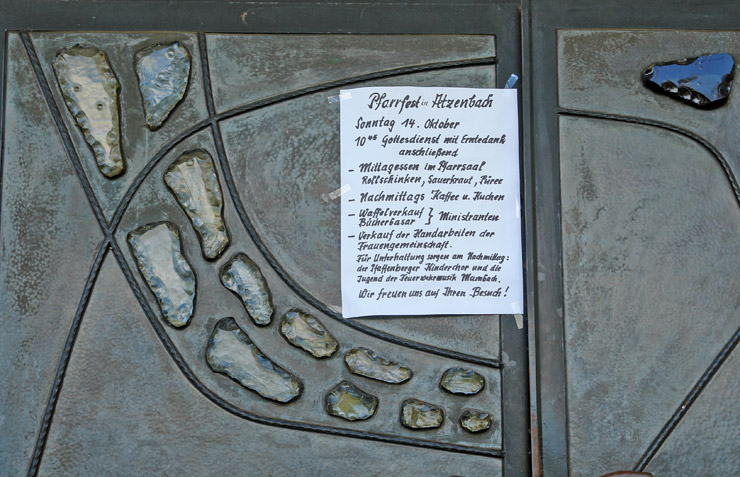 Pfarrfest in Atzenbach
Sonntag 14. Oktober
10⁴⁵ Gottesdienst mit Erntedank
anschließend
- Mittagessen im Pfarrsaal
Rollschinken, Sauerkraut, Püree
- Nachmittags Kaffee u. Kuchen
- Waffelverkauf } Ministranten
Bücherbasar
- Verkauf der Handarbeiten der
Frauengemeinschaft.
Für Unterhaltung sorgen am Nachmittag:
der Pfaffenberger Kinderchor und die
Jugend der Feuerwehrmusik Mambach.
Wir freuen uns auf Ihren Besuch!